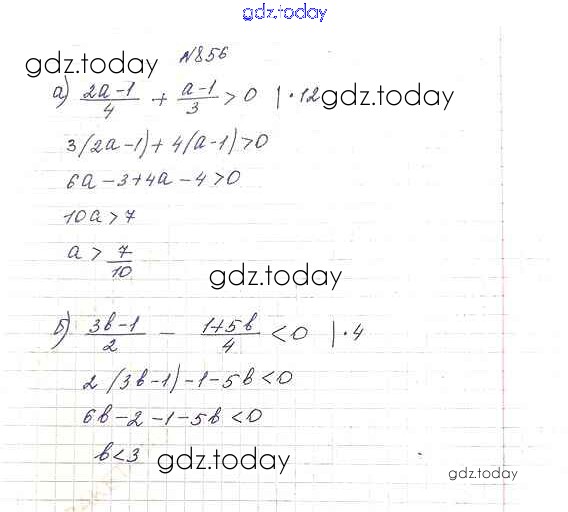 gdz.today
№856
gdz.today
а) (2a-1)/4 + (a-1)/3 > 0 | · 12 gdz.today
3(2a-1)+4(a-1)>0
6a-3+4a-4>0
10a>7
a > 7/10
gdz.today
б) (3b-1)/2 - (1+5b)/4 < 0 | · 4
2(3b-1)-1-5b<0
6b-2-1-5b<0
b<3 gdz.today
gdz.today